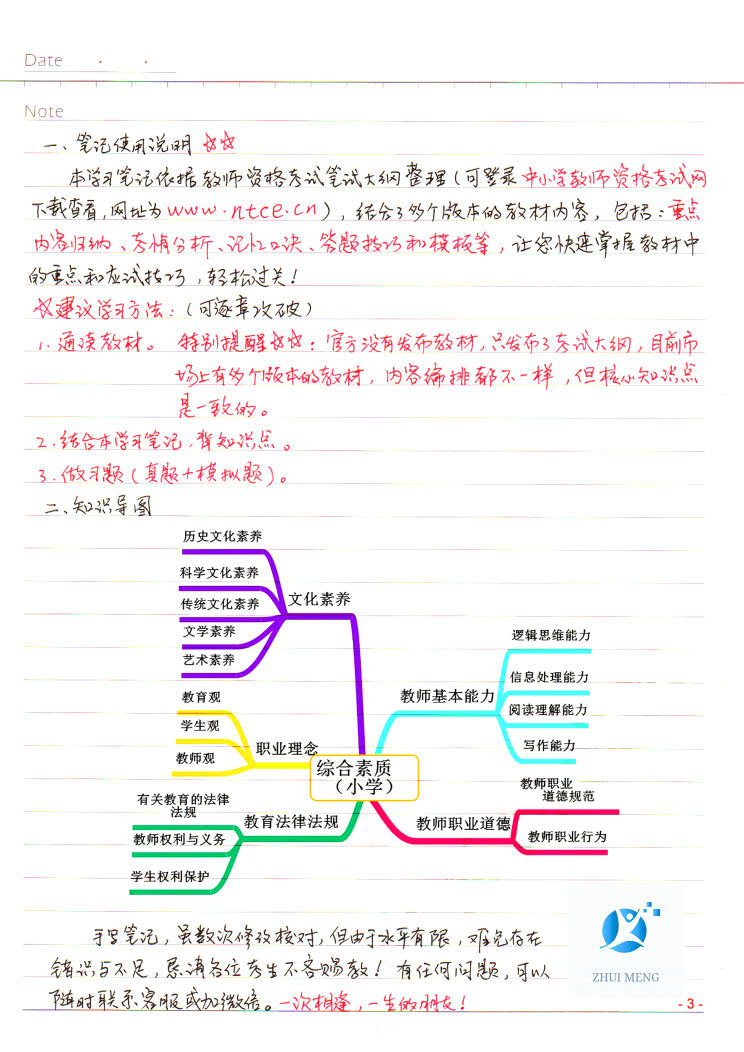 Date
Note
一、笔记使用说明 ☆☆
本学习笔记依据教师资格考试笔试大纲整理(可登录中小学教师资格考试网
下载查看,网址为www.ntce.cn),结合了多个版本的教材内容,包括:重点
内容归纳、考情分析、记忆口诀、答题技巧和模板等,让您快速掌握教材中
的重点和应试技巧,轻松过关!
☆建议学习方法:(可逐章攻破)
1.通读教材。 特别提醒☆☆:官方没有发布教材,只发布了考试大纲,目前市
场上有多个版本的教材,内容编排都不一样,但核心知识点
是一致的。
2.结合本学习笔记,背知识点。
3.做习题(真题+模拟题)。
二、知识导图
历史文化素养
科学文化素养
传统文化素养
文学素养
艺术素养
文化素养
教育观
学生观
教师观
职业理念
有关教育的法律
法规
教师权利与义务
学生权利保护
教育法律法规
综合素质
(小学)
教师基本能力
逻辑思维能力
信息处理能力
阅读理解能力
写作能力
教师职业道德
教师职业
道德规范
教师职业行为
手写笔记,虽数次修改校对,但由于水平有限,难免存在
错误与不足,恳请各位考生不吝赐教!有任何问题,可以
随时联系客服或加微信。一次相逢,一生的朋友!
ZHUI MENG
- 3 -